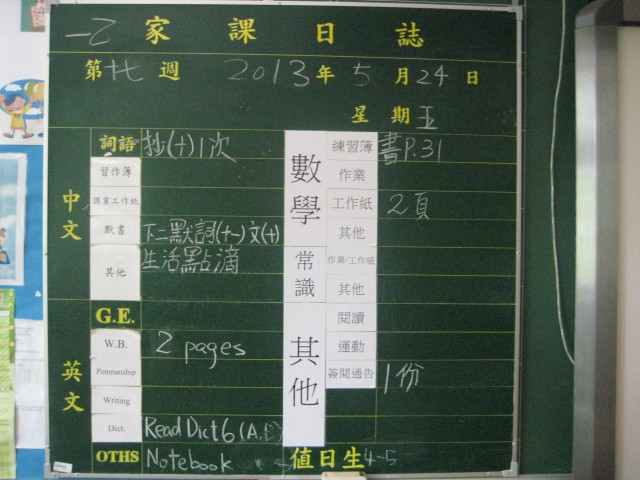 一乙 家課日誌
第十七週 2013年5月24日
星期五
中文
詞語 抄(十)1次
習作簿
課業工作紙
默書 下二默詞(十一)文(十)
其他 生活點滴
英文
G.E.
W.B. 2 pages
Penmanship
Writing
Dict. Read Dict 6
OTHS Notebook
數學
練習簿 書P.31
作業
工作紙 2頁
其他
常識
作業/工作紙
其他
其他
閱讀
運動
簽閱通告 1份
值日生 4-5